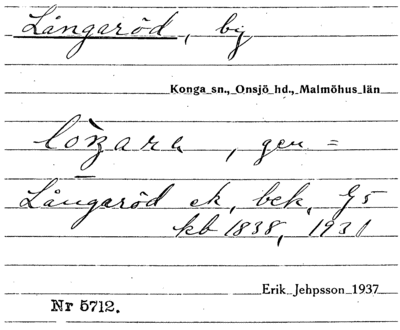 Långaröd, by
Konga sn., Onsjö hd., Malmöhus län
, gen =
Långaröd ek, bek, G5
kb 1838, 1931
Erik Jehpsson 1937
Nr 5712.